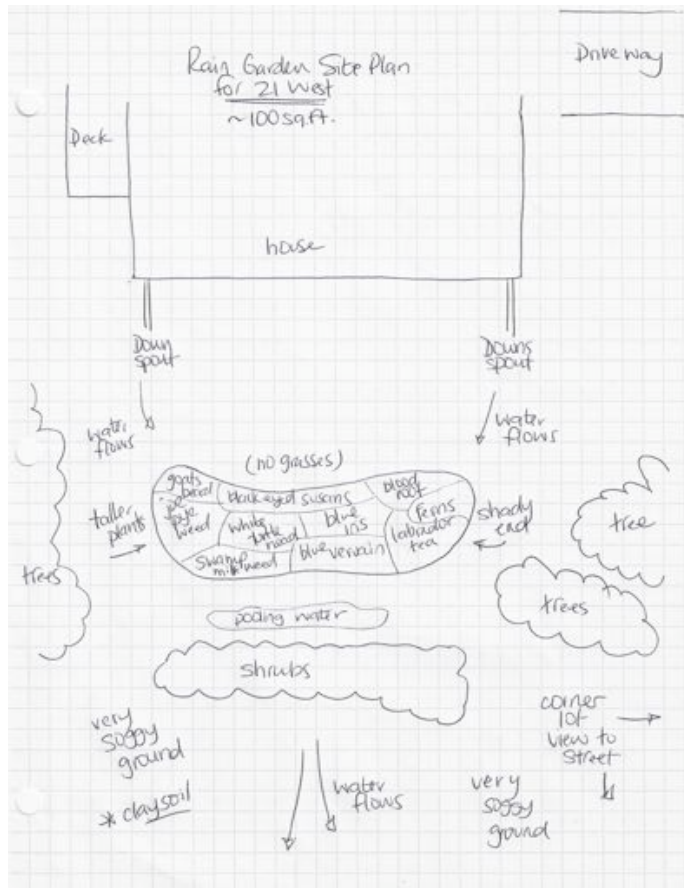 Rain Garden Site Plan
for 21 West
~100 sq.ft.
Driveway
Deck
house
Down
spout
Downs
spout
water
flows
water
flows
(no grasses)
goats
beard
black eyed susans
blood
root
joe
pye
weed
white
turtle
head
blue
iris
ferns
labrador
tea
swamp
milkweed
blue vervain
taller
plants
shady
end
trees
tree
trees
pooling water
shrubs
very
soggy
ground
* clay soil
water
flows
very
soggy
ground
corner
lot
view to
street